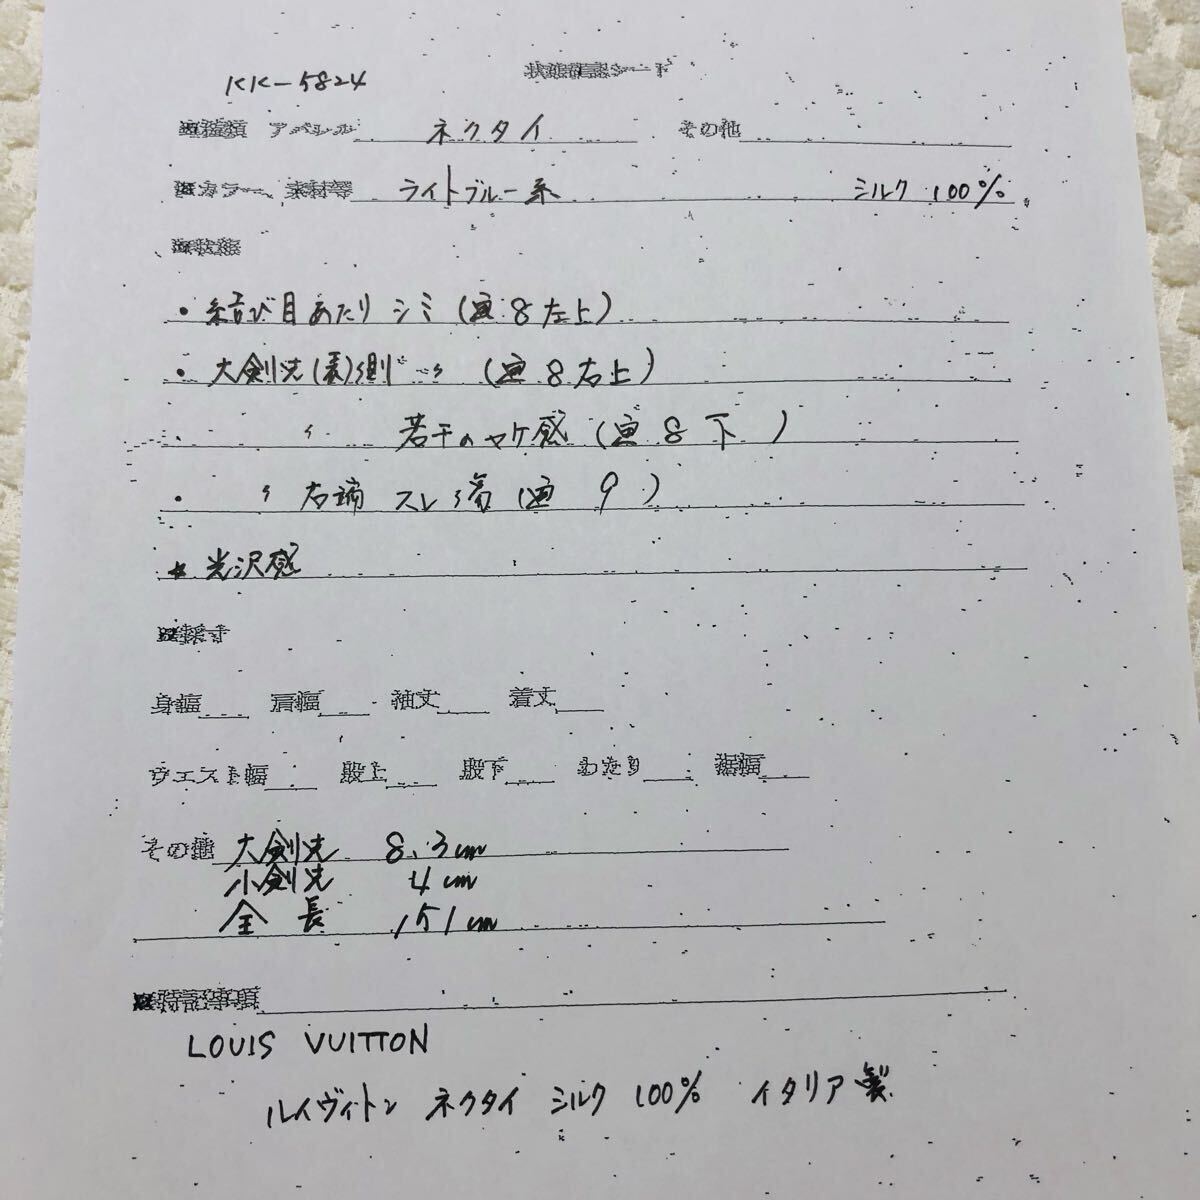 KK-5824
状態確認シート
■種類 アパレル ネクタイ その他
■カラー、素材等 ライトブルー系 シルク 100%
■状態
・結び目あたり シミ (画8左上)
・大剣先(表)側 〃 (画8右上)
〃 若干のヤケ感 (画8下)
・ 〃 右端 スレ傷 (画9)
★光沢感
■採寸
身幅 肩幅 袖丈 着丈
ウエスト幅 股上 股下 わたり 裾幅
その他 大剣先 8.3cm
小剣先 4cm
全長 151cm
■特記事項
LOUIS VUITTON
ルイヴィトン ネクタイ シルク 100% イタリア製